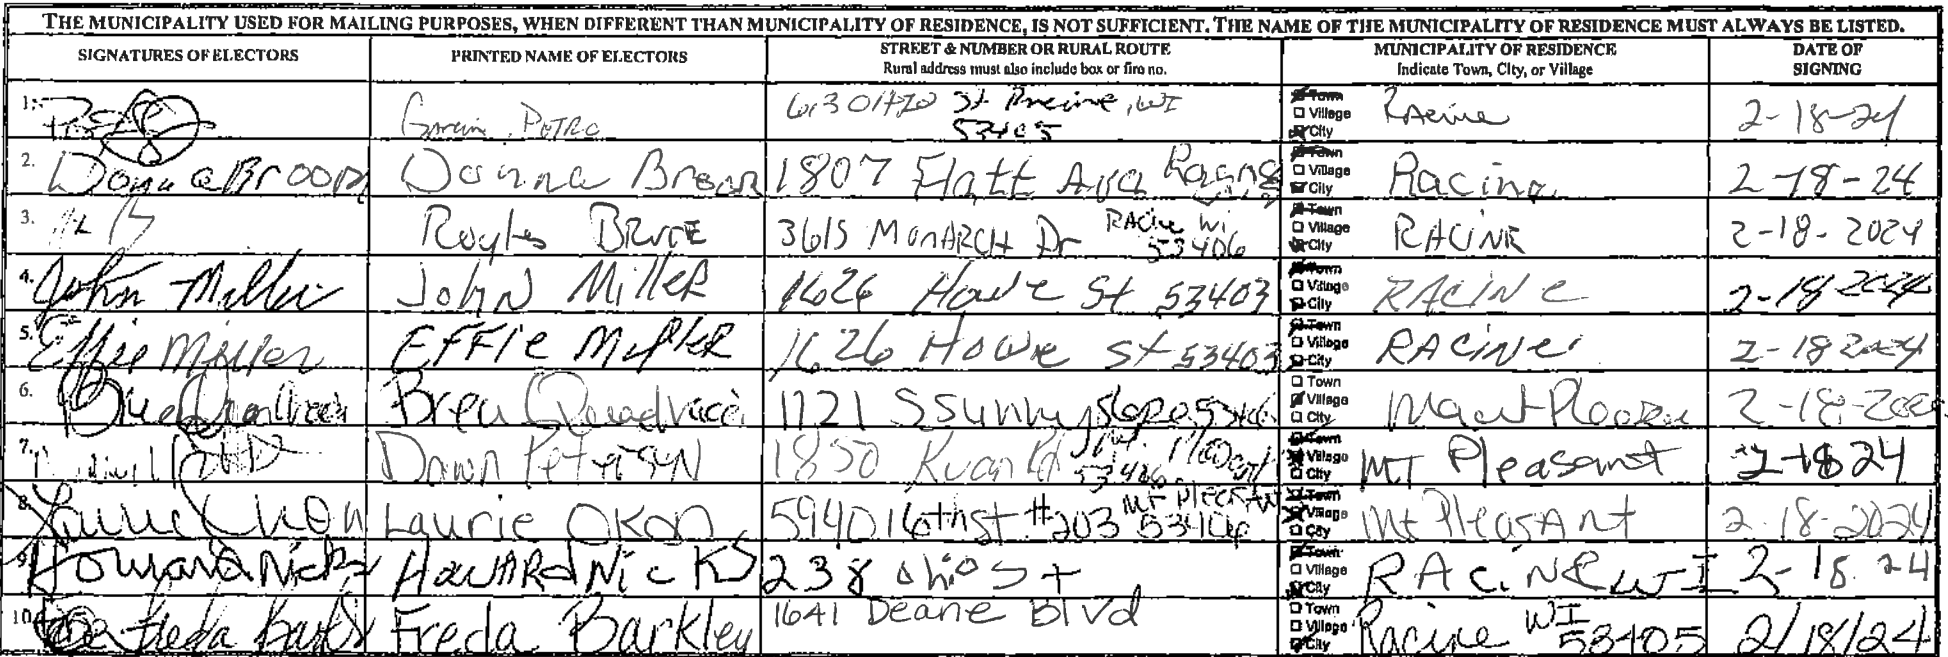 THE MUNICIPALITY USED FOR MAILING PURPOSES, WHEN DIFFERENT THAN MUNICIPALITY OF RESIDENCE, IS NOT SUFFICIENT. THE NAME OF THE MUNICIPALITY OF RESIDENCE MUST ALWAYS BE LISTED.
SIGNATURES OF ELECTORS PRINTED NAME OF ELECTORS STREET & NUMBER OR RURAL ROUTE MUNICIPALITY OF RESIDENCE DATE OF
Rural address must also include box or fire no. Indicate Town, City, or Village SIGNING
1. St Racine, WI Town Village City Racine 2-18-24
53405
2. Donna Broom 1807 Ave Town Village City Racine 2-18-24
3. BRUCE 3615 MONARCH Dr RACINE WI 53406 Town Village City RACINE 2-18-2024
4. John Miller JOHN MILLER 1626 Howe St 53403 Town Village City RACINE 2-18-2024
5. Effie Miller EFFIE MILLER 1626 Howe St 53403 Town Village City RACINE 2-18 2024
6. 1121 S Sunnyslope Town Village City Mount Pleasant 2-18-
7. Dawn Peterson 1850 Town Village City MT Pleasant 2-18 24
8. Laurie Okon Laurie OKON 5940 16th st #203 MT Pleasant 53406 Town Village City Mt Pleasant 2-18-2024
9. Howard Nicks HOWARD NICKS 238 Ohio St Town Village City RACINE WI 2-18-24
10. Freda Barkley Freda Barkley 1641 Deane Blvd Town Village City Racine WI 53405 2/18/24